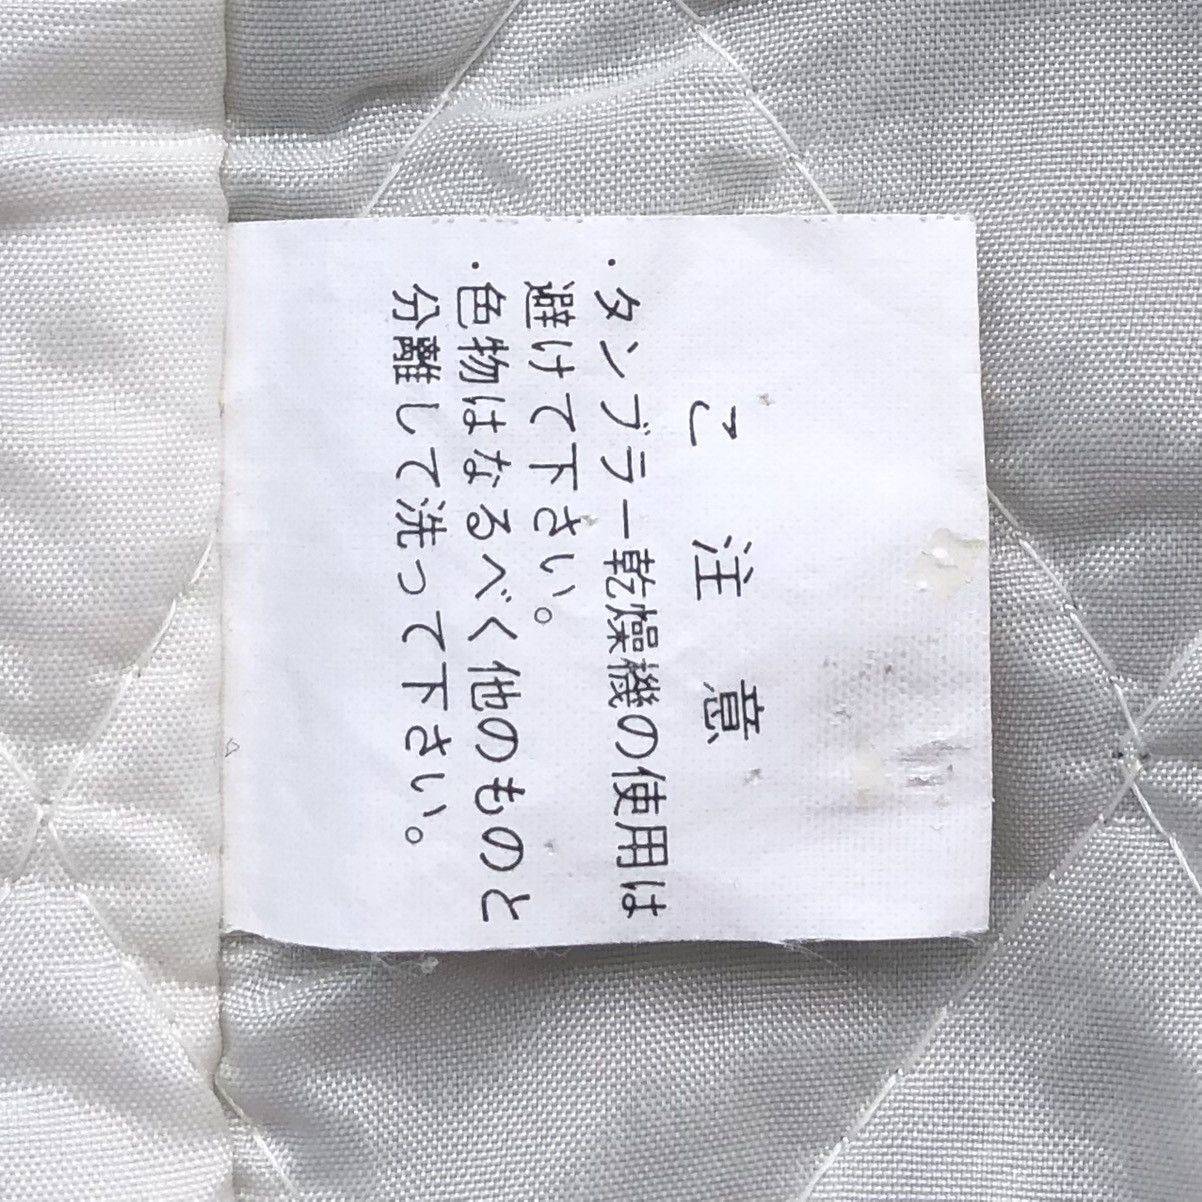 ご注意
・タンブラー乾燥機の使用は
避けて下さい。
・色物はなるべく他のものと
分離して洗って下さい。